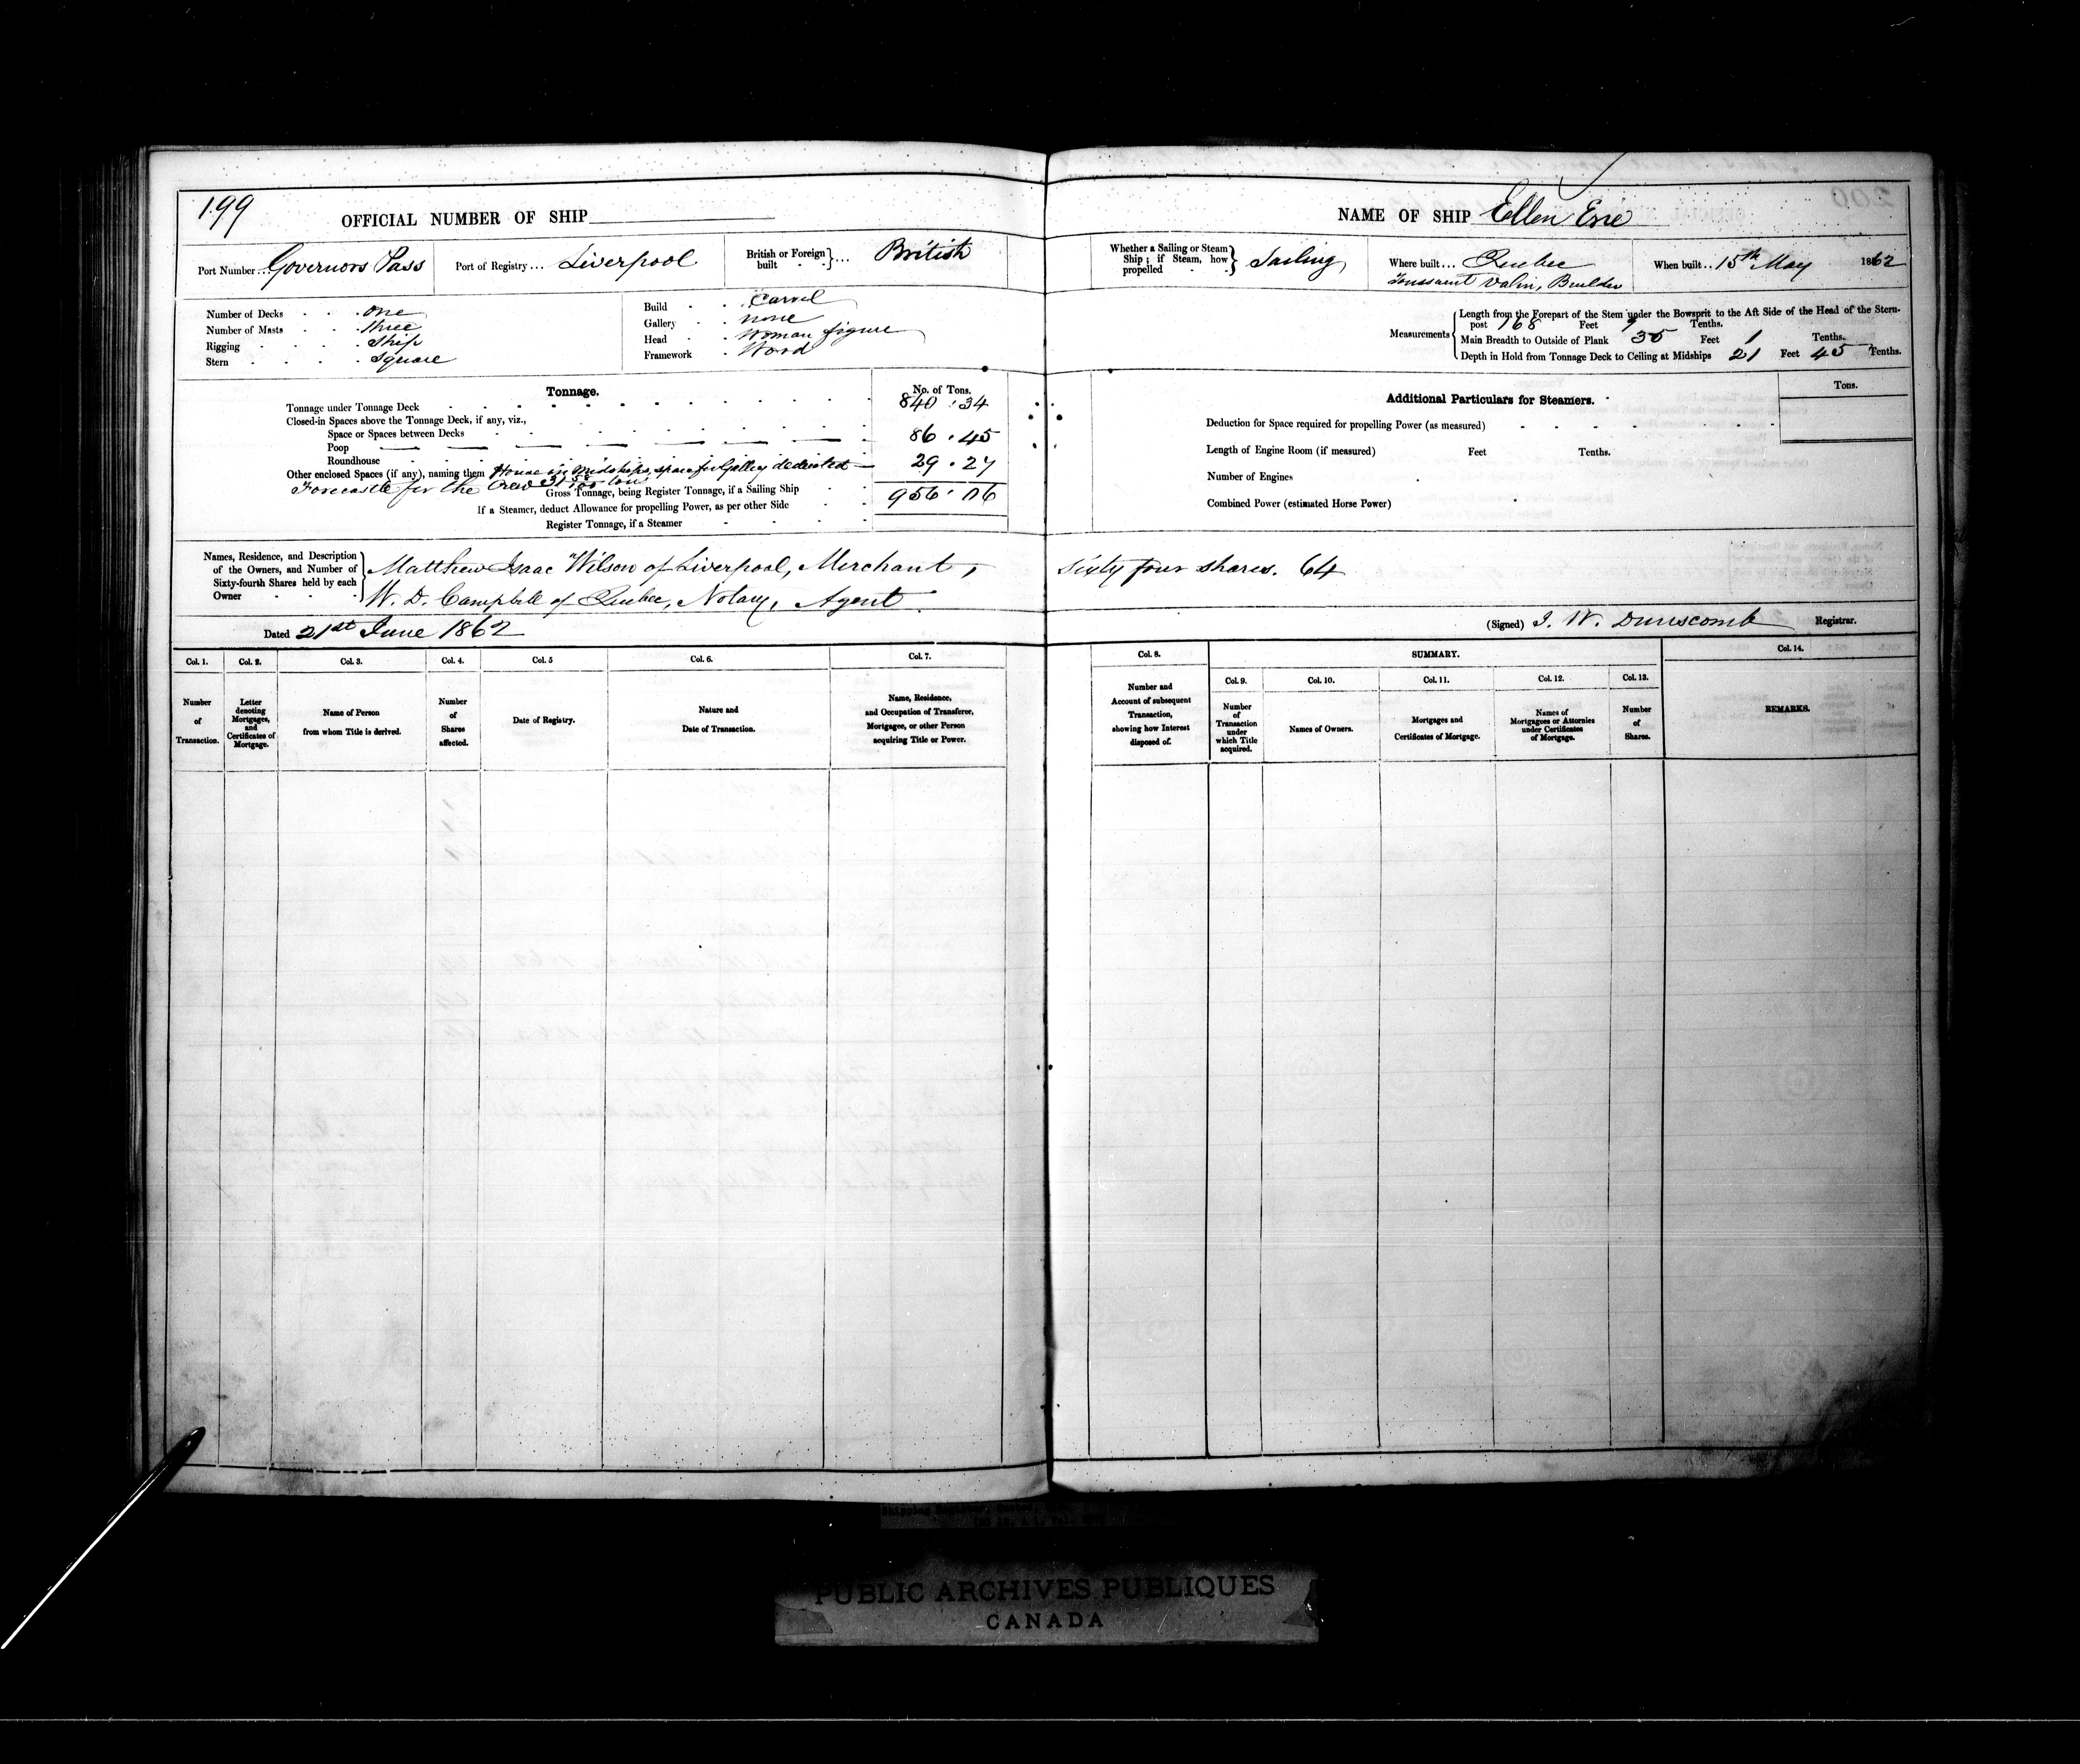 199
OFFICIAL NUMBER OF SHIP
NAME OF SHIP Ellen
Port Number ... Governors Pass
Port of Registry ... Liverpool
British or Foreign built ... British
Whether a Sailing or Steam Ship; if Steam, how propelled Sailing
Where built ... Quebec
Toussaint Valin, Builder
When built .. 15th May 1862
Number of Decks . . . One
Number of Masts . . . Three
Rigging . . . . Ship
Stern . . . . Square
Build . . Carvel
Gallery . . none
Head . . Woman figure
Framework . Wood
Measurements
Length from the Forepart of the Stem under the Bowsprit to the Aft Side of the Head of the Stern-
post 168 Feet 9 Tenths.
Main Breadth to Outside of Plank 35 Feet 1 Tenths.
Depth in Hold from Tonnage Deck to Ceiling at Midships 21 Feet 45 Tenths.
Tonnage.
No. of Tons.
Tonnage under Tonnage Deck 840 . 34
Closed-in Spaces above the Tonnage Deck, if any, viz.,
Space or Spaces between Decks 86 . 45
Poop
Roundhouse
Other enclosed Spaces (if any), naming them House in Midships, space for Galley deducted 29 . 27
Forecastle for the Crew tons
Gross Tonnage, being Register Tonnage, if a Sailing Ship 956 . 06
If a Steamer, deduct Allowance for propelling Power, as per other Side
Register Tonnage, if a Steamer
Additional Particulars for Steamers.
Tons.
Deduction for Space required for propelling Power (as measured)
Length of Engine Room (if measured) Feet Tenths.
Number of Engines
Combined Power (estimated Horse Power)
Names, Residence, and Description of the Owners, and Number of Sixty-fourth Shares held by each Owner
Matthew Isaac Wilson of Liverpool, Merchant, sixty four shares. 64
W. D. Campbell of Quebec, Notary, Agent
Dated 21st June 1862
(Signed) J. W. Dunscomb Registrar.
Col. 1.
Col. 2.
Col. 3.
Col. 4.
Col. 5
Col. 6.
Col. 7.
Col. 8.
SUMMARY.
Col. 14.
Col. 9.
Col. 10.
Col. 11.
Col. 12.
Col. 13.
Number of Transaction.
Letter denoting Mortgages, and Certificates of Mortgage.
Name of Person from whom Title is derived.
Number of Shares affected.
Date of Registry.
Nature and Date of Transaction.
Name, Residence, and Occupation of Transferee, Mortgagee, or other Person acquiring Title or Power.
Number and Account of subsequent Transaction, showing how Interest disposed of.
Number of Transaction under which Title acquired.
Names of Owners.
Mortgages and Certificates of Mortgage.
Names of Mortgagees or Attornies under Certificates of Mortgage.
Number of Shares.
REMARKS.
PUBLIC ARCHIVES PUBLIQUES
CANADA